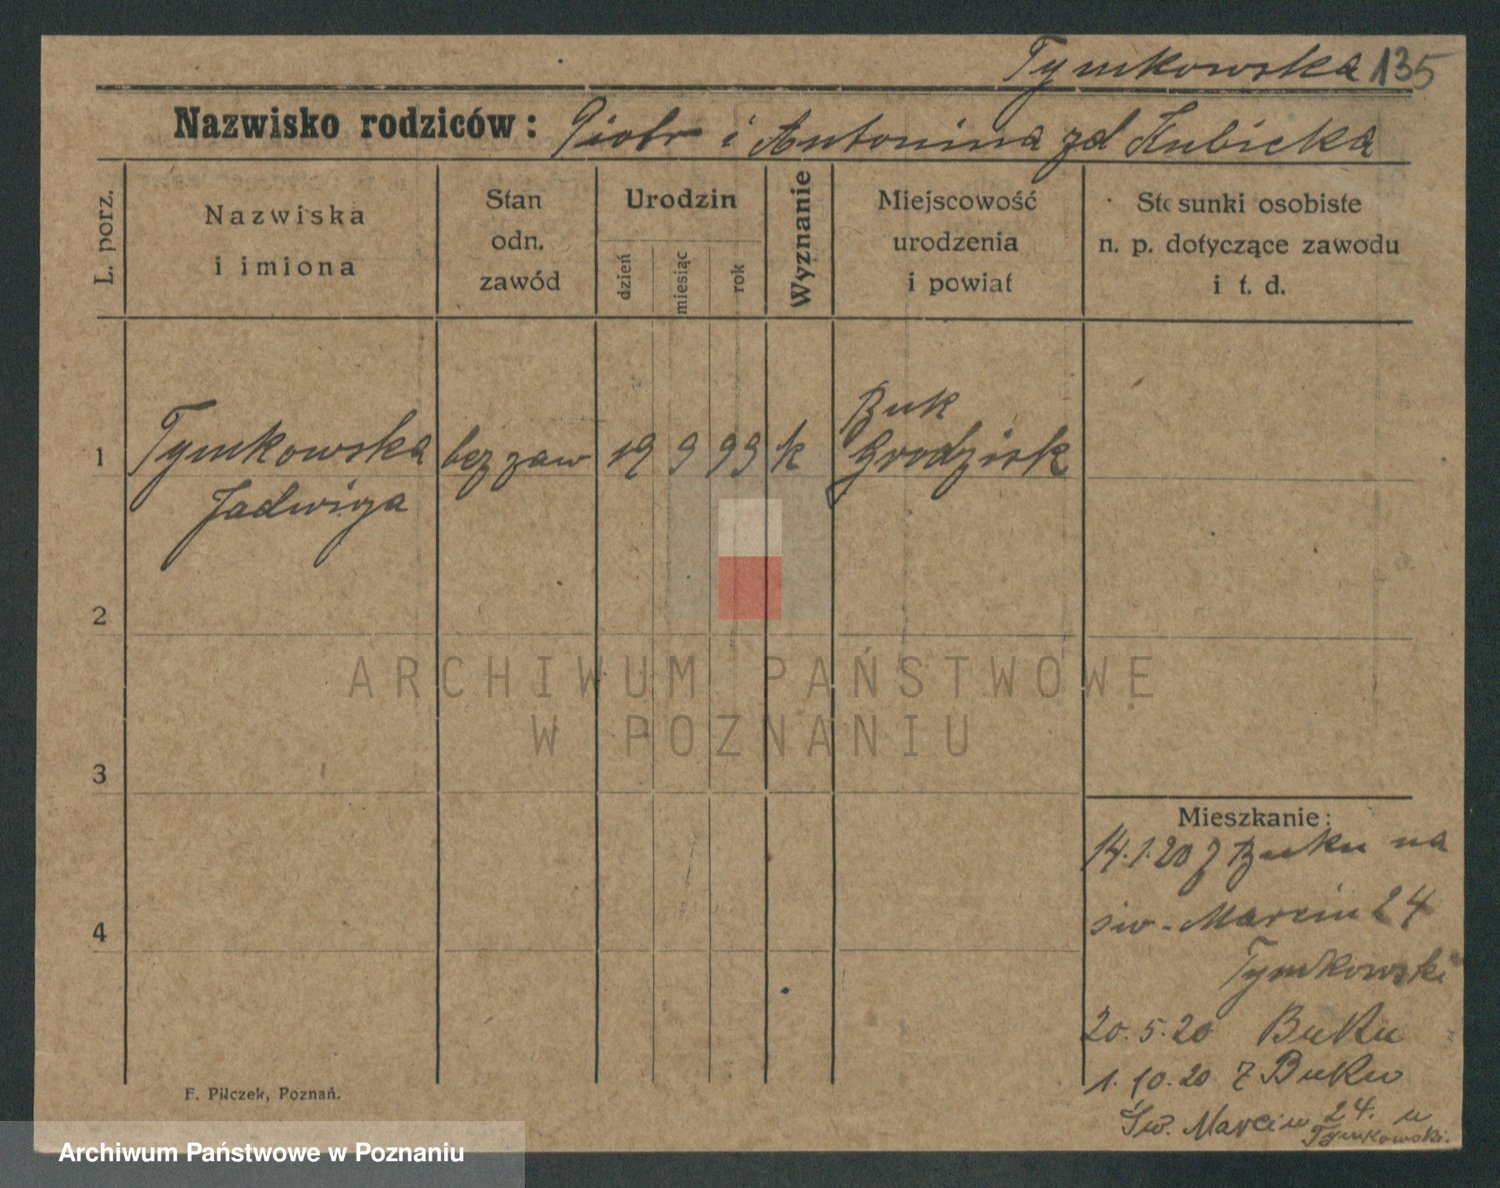 Tymkowska 135
Nazwisko rodziców: Piotr i Antonina zd Kubicka
L. porz.
Nazwiska
i imiona
Stan
odn.
zawód
Urodzin
dzień
miesiąc
rok
Wyznanie
Miejscowość
urodzenia
i powiat
Stosunki osobiste
n. p. dotyczące zawodu
i t. d.
1 Tymkowska bez zaw 19 9 99 k Buk
Grodzisk
Jadwiga
2
3
4
ARCHIWUM PAŃSTWOWE
W POZNANIU
Mieszkanie:
14.1.20 z Buku na
św. Marcin 24
Tymkowski
20.5.20 Buku
1.10.20 z Buku
Św. Marcin 24. u
Tymkowski.
F. Pilczek, Poznań.
Archiwum Państwowe w Poznaniu